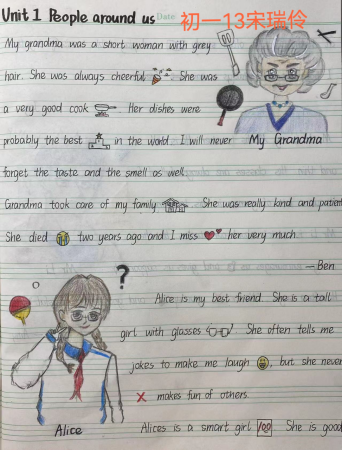 Unit 1 People around us
Date
初一13宋瑞伶
My grandma was a short woman with grey
hair. She was always cheerful. She was
a very good cook. Her dishes were
probably the best in the world. I will never
My Grandma
forget the taste and the smell as well.
Grandma took care of my family. She was really kind and patient
She died two years ago and I miss her very much.
—Ben
?
Alice is my best friend. She is a tall
girl with glasses. She often tells me
jokes to make me laugh, but she never
makes fun of others.
Alice
Alices is a smart girl 100 She is good